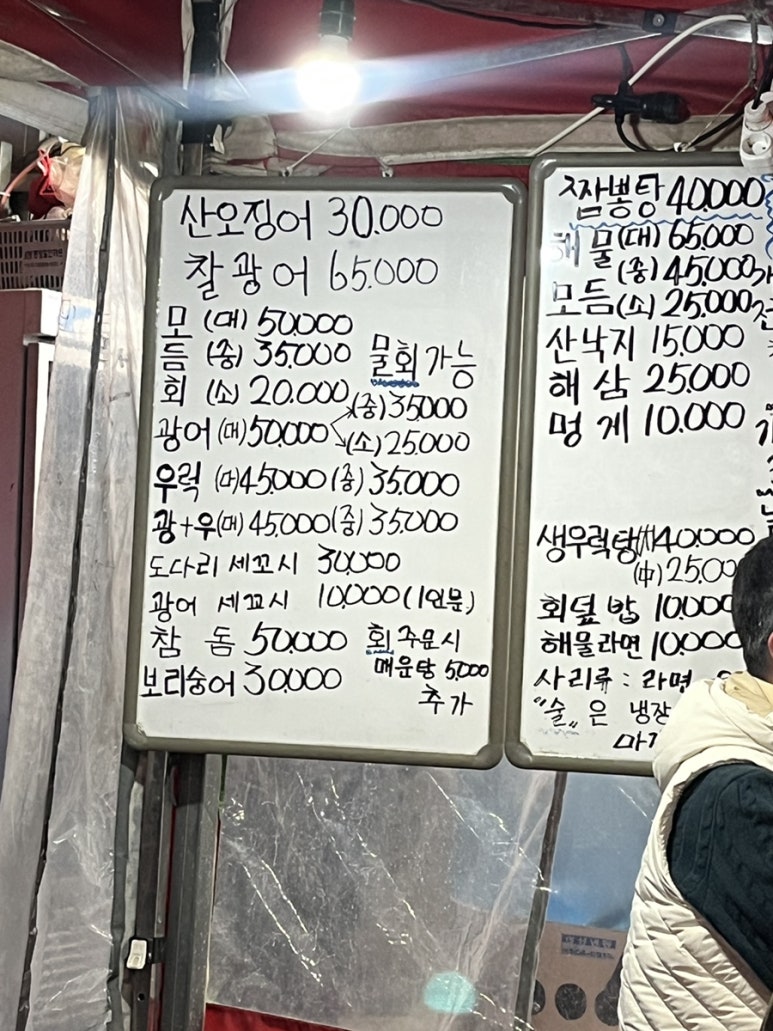 산오징어 30.000
찰광어 65.000
모 (대) 50.000
듬 (중) 35.000 물회가능
회 (소) 20.000
(중) 35.000
광어 (대) 50.000
(소) 25.000
우럭 (대) 45.000 (중) 35.000
광+우 (대) 45.000 (중) 35.000
도다리 세꼬시 30.000
광어 세꼬시 10.000 (1인분)
참 돔 50.000 회 주문시
매운탕 5.000
보리숭어 30.000
추가
짬뽕탕 40.000
해물 (대) 65.000
(중) 45.000
모듬 (소) 25.000
산낙지 15.000
해 삼 25.000
멍 게 10.000
생우럭탕 (大) 40.000
(中) 25.00
회덮밥 10.000
해물라면 10.000
사리류 : 라면
"술" 은 냉장